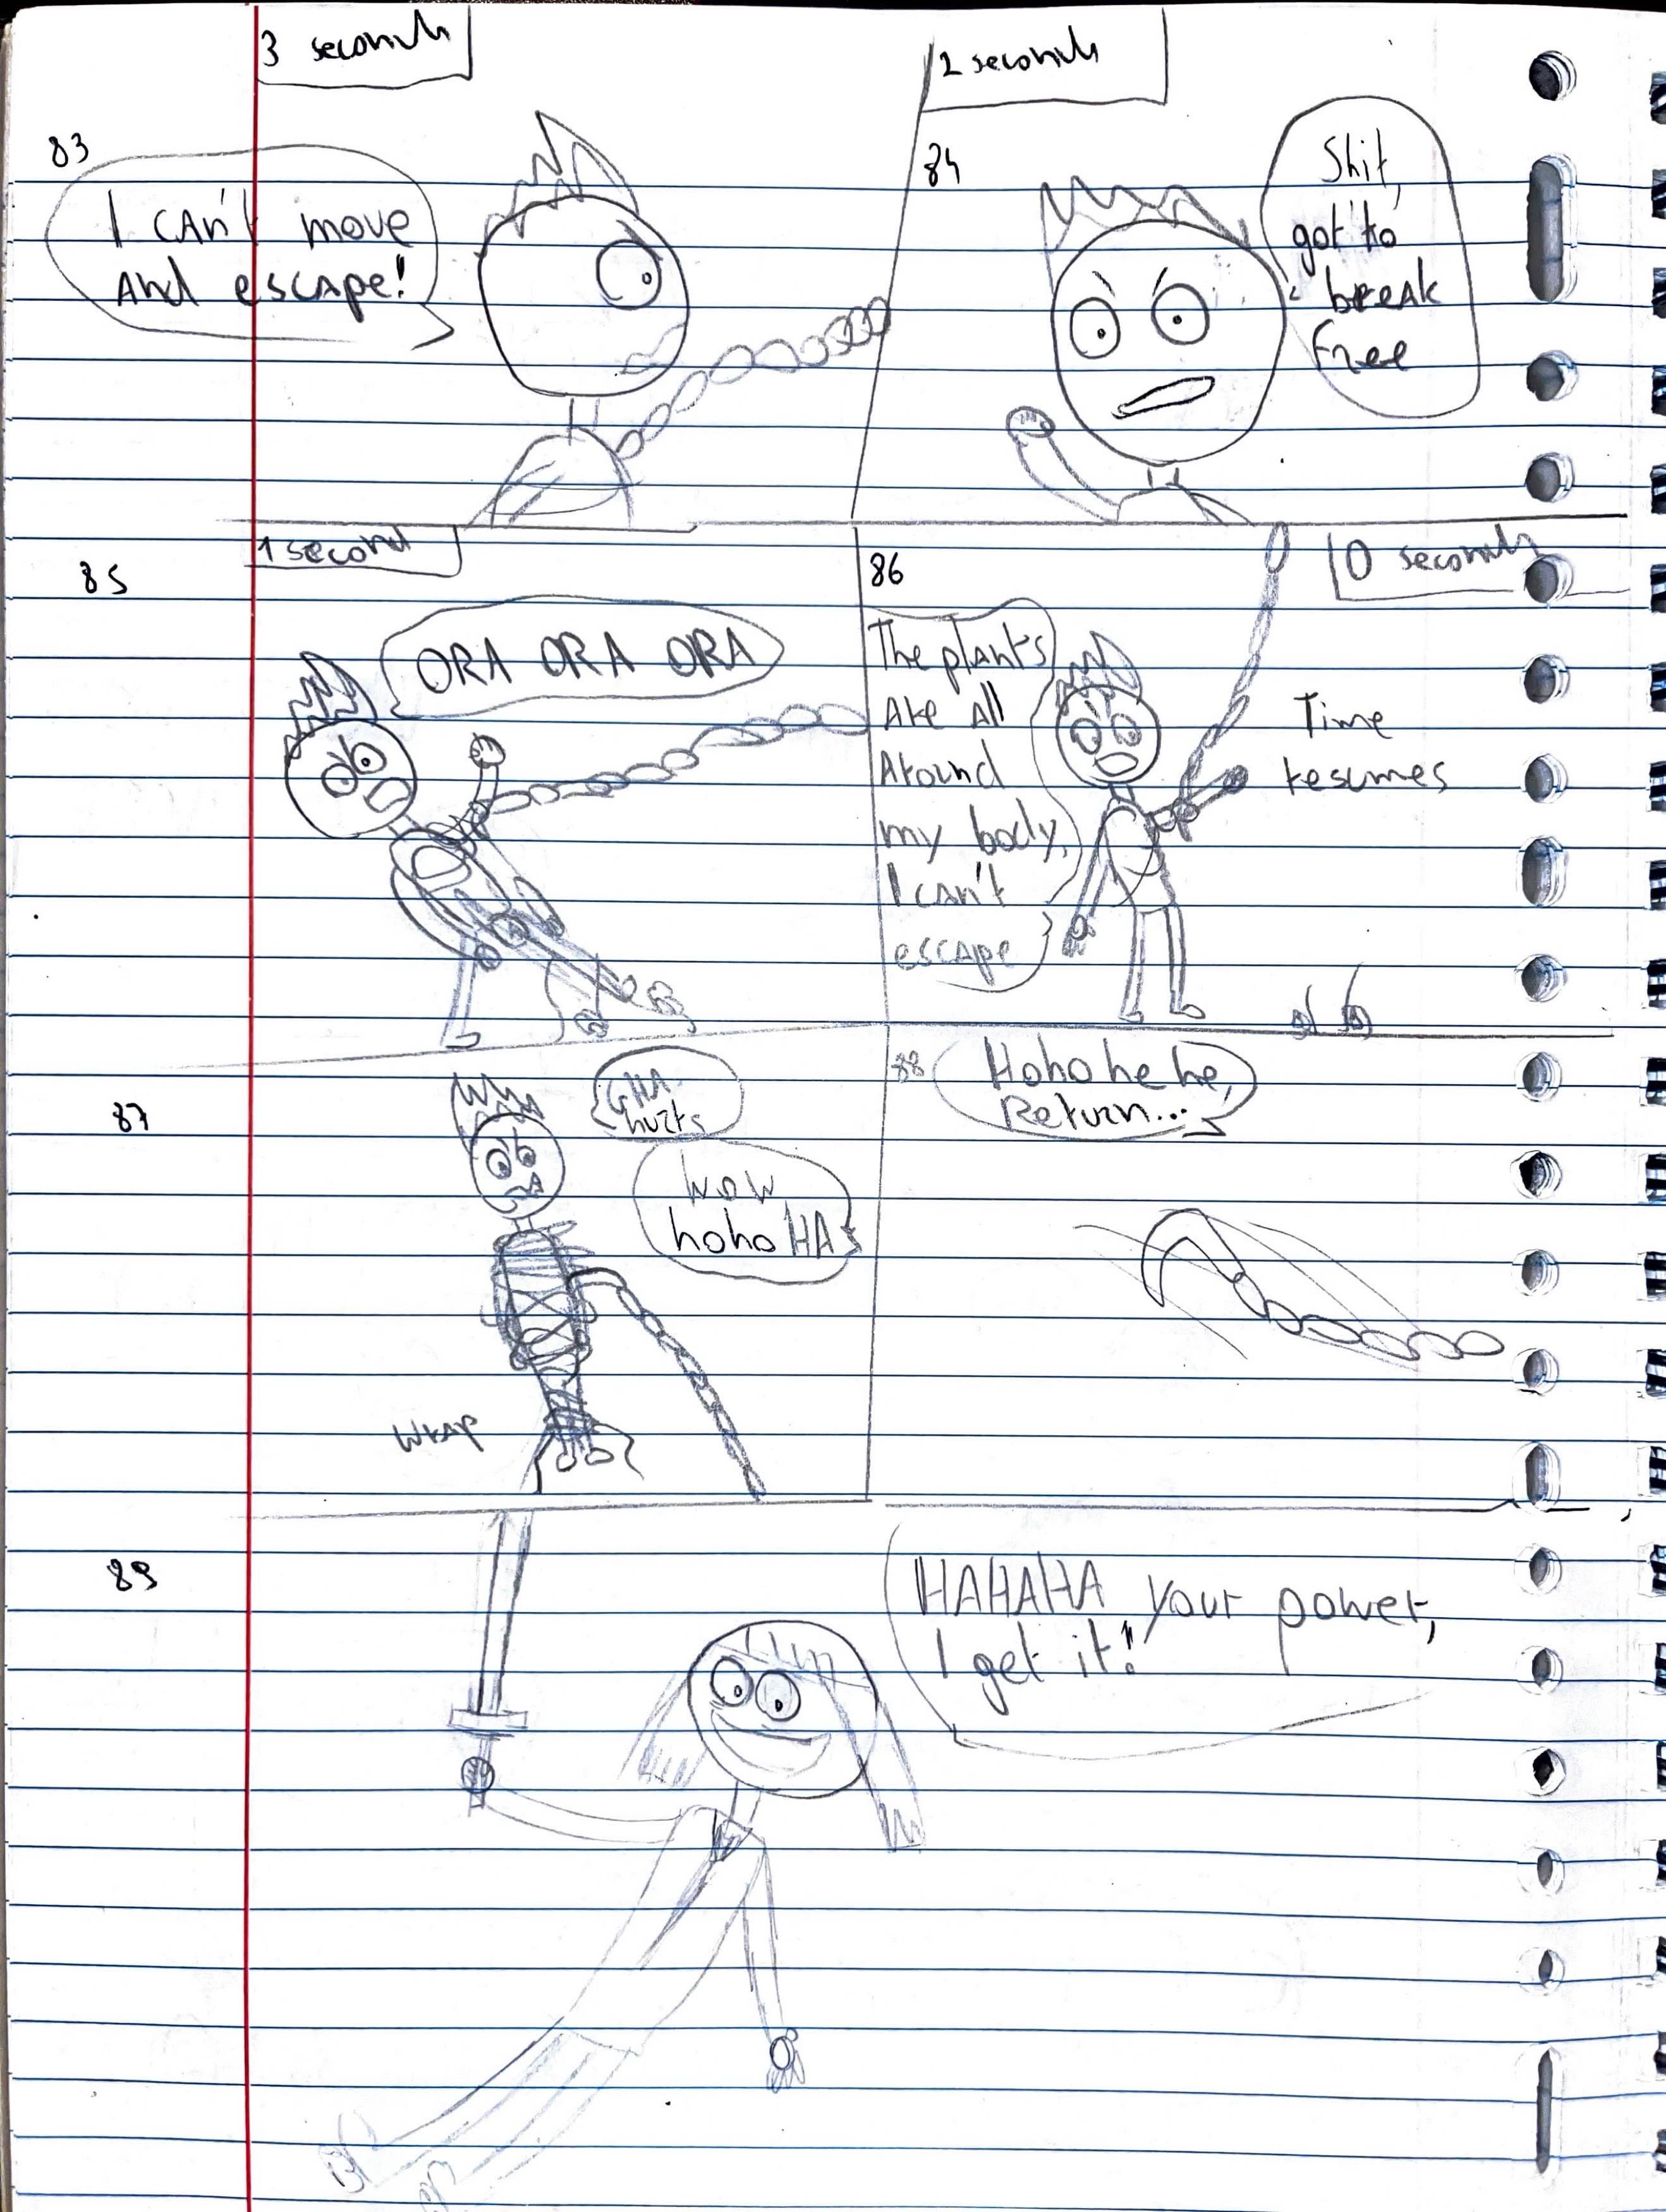 3 seconds
83
I CAn't move
And escape!
2 seconds
84
Shit,
got to
break
free
1 second
85
ORA ORA ORA
86
0 seconds
The plants
Are All
Around
my body,
I can't
escape
Time
resumes
87
GHA
hurts
WOW
hoho HA
Wrap
88
Hoho he he,
Return...
89
HAHAHA Your power,
I get it!